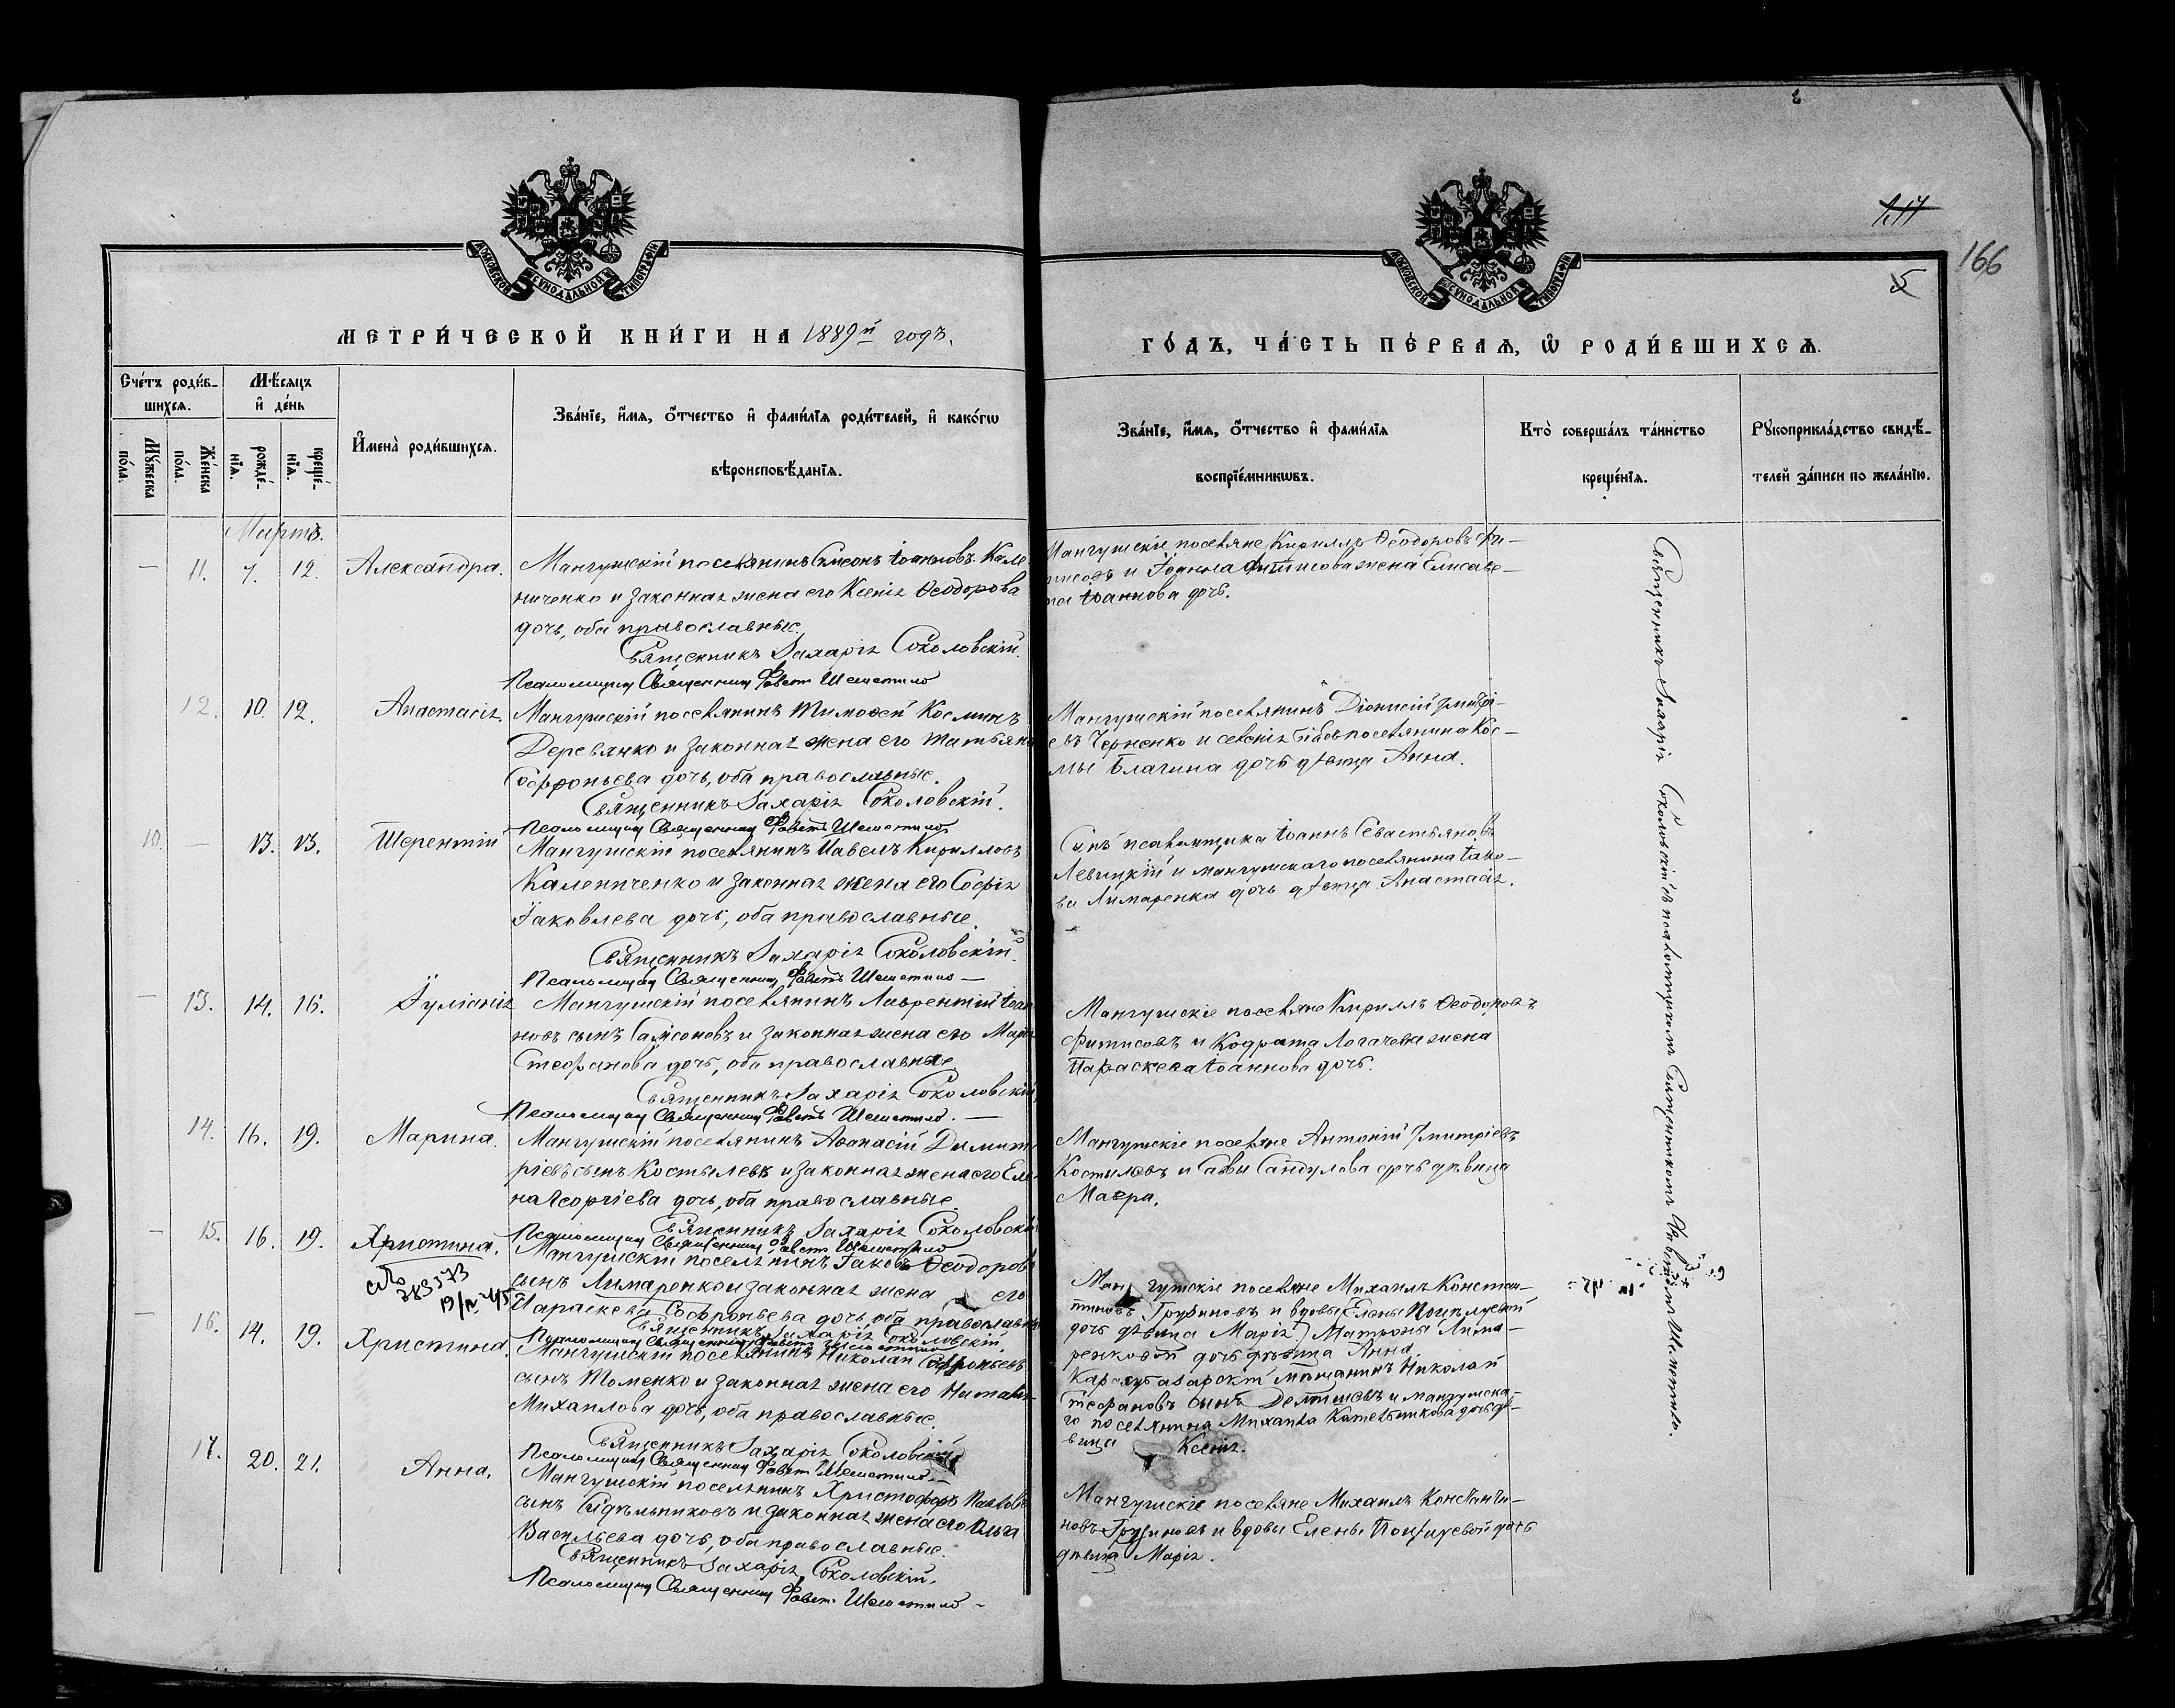 117
166
5
МОСКОВСКОЙ СѴНОДАЛЬНОЙ ТИПОГРАФІИ
МОСКОВСКОЙ СѴНОДАЛЬНОЙ ТИПОГРАФІИ
МЕТРИ́ЧЕСКОЙ КНИ́ГИ НА 1889й годъ.
ГО́ДЪ, ЧА́СТЬ ПЕ́РВАѦ, Ѡ РОДИ́ВШИХСѦ.
Сче́тъ роди́в-
шихсѧ.
Мꙋ́жеска по́ла.
Же́нска по́ла.
Мѣ́сѧцъ
и҆ де́нь
рожде́-нїѧ.
креще́-нїѧ.
И҆мена̀ роди́вшихсѧ.
Зва́нїе, и҆́мѧ, ѻ҆́тчество и҆ фами́лїѧ роди́телей, и҆ како́гѡ
вѣроисповѣ́данїѧ.
Зва́нїе, и҆́мѧ, ѻ҆́тчество и҆ фами́лїѧ
воспрїе́мникѡвъ.
Кто̀ соверша́лъ та́инство
креще́нїѧ.
Рꙋкоприкла́дство свидѣ́-
телей за́писи по жела́нїю.
Мартъ.
— 11. 7. 12. Александра.
Мангушскій поселянинъ Симеонъ Іоанновъ Кале
ниченко и законная жена его Ксенія Ѳеодорова
дочь, оба православные.
Священникъ Захарія Соколовскій.
Псаломщик Священник Шеметило
Мангушскіе поселяне Кириллъ Ѳеодоровъ Фи-
тисовъ и жена Елисаве-
та Іоаннова дочь.
12. 10. 12. Анастасія.
Мангушскій поселянинъ Тимоѳей Косминъ
Деревянко и законная жена его Татьяна
Софроньева дочь, оба православные.
Священникъ Захарія Соколовскій.
Псаломщик Священник Шеметило
Мангушскій поселянинъ Діонисій Димитрі-
евъ Черненко и поселянина Кос-
мы Благина дочь дѣвица Анна.
10. — 13. 13. Терентій
Мангушскій поселянинъ Павелъ Кирилловъ
Калениченко и законная жена его Софія
Іаковлева дочь, оба православные.
Священникъ Захарія Соколовскій.
Псаломщик Священник Шеметило —
Сынъ псаломщика Іоаннъ Севастьяновъ
Левицкій и мангушскаго поселянина Іако-
ва Лимаренка дочь дѣвица Анастасія.
— 13. 14. 16. Іуліанія
Мангушскій поселянинъ Лаврентій Іоан
новъ сынъ Самсоновъ и законная жена его Марія
Стефанова дочь, оба православные
Священникъ Захарія Соколовскій
Псаломщик Священник Шеметило. —
Мангушскіе поселяне Кириллъ Ѳеодоровъ
Фитисовъ и Кодрата Логачева жена
Параскева Іоаннова дочь.
14. 16. 19. Марина.
Мангушскій поселянинъ Аѳанасій Димит
ріевъ сынъ Костылевъ и законная жена его Еле
на Георгіева дочь, оба православные.
Священникъ Захарія Соколовскій
Псаломщик Священник Шеметило
Мангушскіе поселяне Антоній Димитріевъ
Костылевъ и Саввы Сандулова дочь дѣвица
Мавра.
— 15. 16. 19. Христина.
383373
Мангушскій поселянинъ Іаковъ Ѳеодоровъ
сынъ Лимаренко и законная жена его
Параскева Софроньева дочь, оба православн
Священникъ Захарія Соколовскій.
Псаломщик Священник Шеметило
Мангушскіе поселяне Михаилъ Констан-
тиновъ Грузиновъ и вдовы Елены
дочь дѣвица Марія. Матроны Лима-
ренковой дочь дѣвица Анна.
16. 14. 19. Христина.
Мангушскій поселянинъ Николай Софроньевъ
сынъ Томенко и законная жена его Наталія
Михаилова дочь, оба православные.
Священникъ Захарія Соколовскій
Псаломщик Священник Шеметило —
Карасубазарскій мѣщанинъ Николай
Стефановъ сынъ и мангушска-
го поселянина Михаила дочь дѣ-
вица Ксенія.
17. 20. 21. Анна.
Мангушскій поселянинъ Христофоръ Павловъ
сынъ Сидѣльниковъ и законная жена его Ольга
Васильева дочь, оба православные.
Священникъ Захарія Соколовскій.
Псаломщик Священник Шеметило —
Мангушскіе поселяне Михаилъ Константи-
новъ Грузиновъ и вдовы Елены дочь
дѣвица Марія.
Священникъ Захарія Соколовскій съ псаломщикомъ Священникомъ Шеметило.